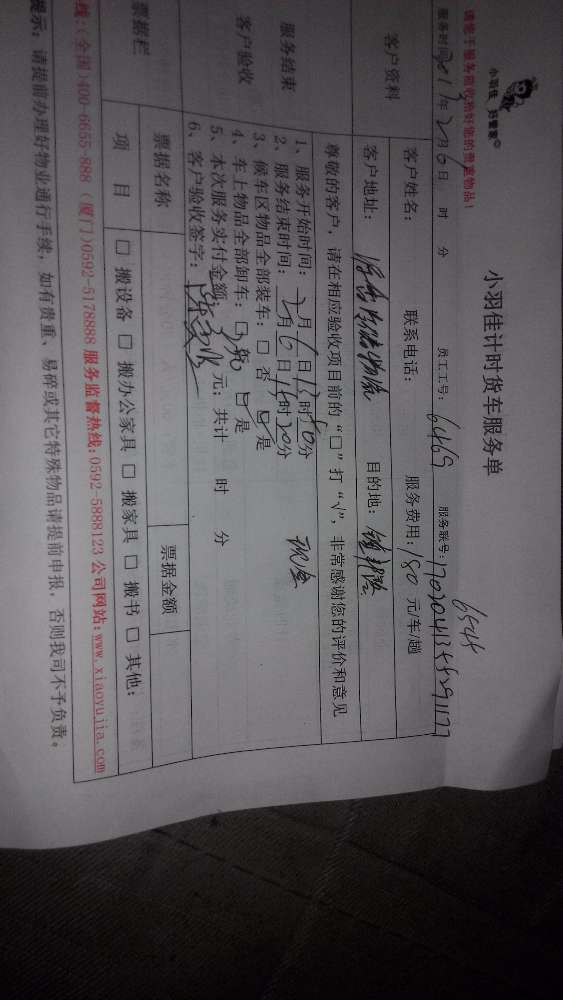 小羽佳 好管家
小羽佳计时货车服务单
请您于服务前收拾好您的贵重物品!
服务时间: 2017年2月6日 时 分 员工工号: 6469 服务联号:
客户资料
客户姓名: 联系电话: 服务费用: 180 元/车/趟
客户地址: 目的地:
尊敬的客户,请在相应验收项目前的“□”打“√”,非常感谢您的评价和意见
服务结束
客户验收
1、服务开始时间: 2月6日 时 分
2、服务结束时间: 2月6日 时20分 现金
3、候车区物品全部装车: □ 否 □ 是
4、车上物品全部卸车: □ 否 □ 是
5、本次服务实付金额: 元; 共计 时 分
6、客户验收签字:
票据栏
票据名称 票据金额
项 目 □ 搬设备 □ 搬办公家具 □ 搬家具 □ 搬书 □ 其他:
线: (全国)400-6655-888 (厦门)0592-5178888 服务监督热线: 0592-5888123 公司网站: www.xiaoyujia.com
提示: 请提前办理好物业通行手续, 如有贵重、易碎或其它特殊物品请提前申报, 否则我司不予负责。